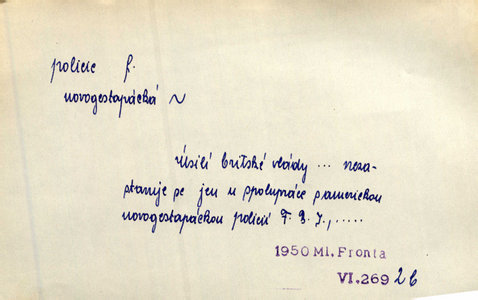 policie f.
novogestapácká ~
Úsilí britské vlády ... neza-
stavuje se jen u spolupráce s americkou
novogestapáckou policií F. B. I., .....
1950 Ml. Fronta
VI.269 2b